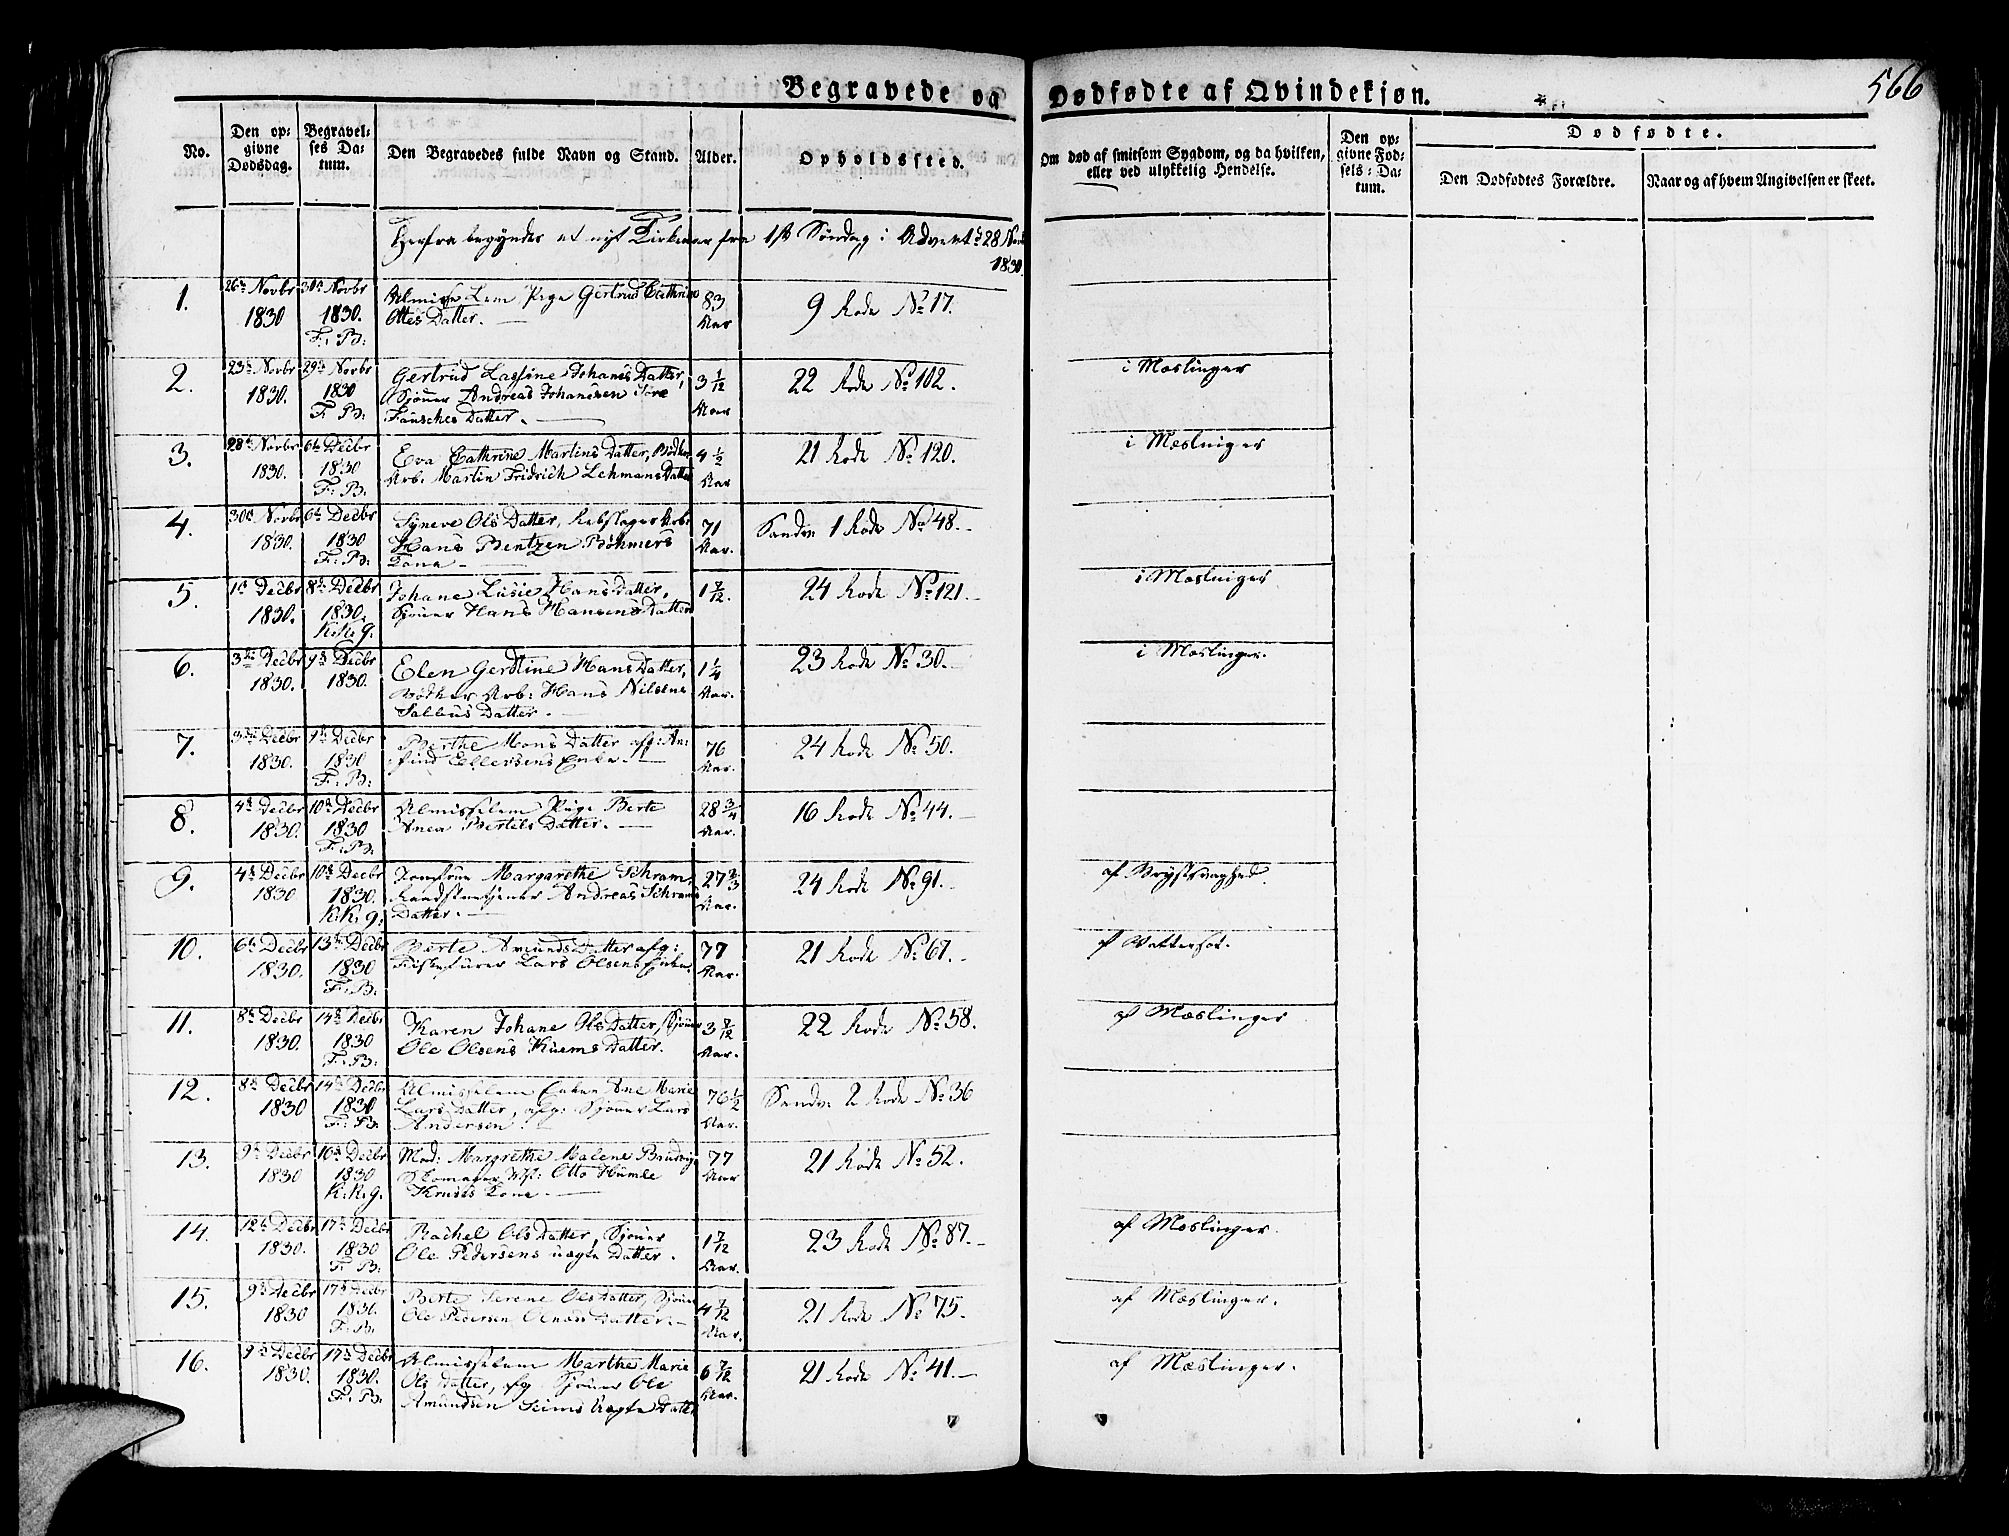 566
Begravede og Dødfødte af Qvindekjøn.
No.
Den opgivne Dødsdag.
Begravelses Datum.
Den Begravedes fulde Navn og Stand.
Alder.
Opholdssted.
Om død af smitsom Sygdom, og da hvilken, eller ved ulykkelig Hendelse.
Den opgivne Fødsels-Datum.
Dødfødte.
Den Dødfødtes Forældre.
Naar og af hvem Angivelsen er skeet.
Herfra begyndes et nyt Kirkeaar fra 1st Søndag i Advent d 28 Novb
1830.
1. 26de Novbr 1830 30te Novbr 1830. F: B: Almisse Lem Pige Gertrud Cathrine
Ottes Datter. 83 Aar 9 Rode No 17.
2. 23de Novbr 1830. 29de Novbr 1830 F: B: Gertrud Lassine Johanes Datter,
Sjouer Andreas Johanesen Tore
Fausches Datter. 3 1/12 Aar 22 Rode No 102. i Mæslinger
3. 28de Novbr 1830. 6te Decbr 1830 F: B: Eva Cathrine Martins Datter, Bødker
Arb: Martin Fridrich Lehmans Datter 4 1/2 Aar 21 Rode No 120. i Mæslniger
4. 30te Novbr 1830. 6te Decbr 1830 F: B: Syneve Ols Datter, Rebslager Arb:
Hans Bentzen Bøhmers
Kone 71 Aar. Sandv: 1 Rode No 48.
5. 1te Decbr 1830. 8de Decbr 1830. K: K: g. Johane Lusie Hans Datter,
Sjouer Hans Hansens Datter 1 7/12. 24 Rode No 121. i Mæslniger
6. 3de Decbr 1830. 9de Decbr 1830. Elen Gerdtine Hans Datter,
Bødker Arb: Hans Nilsens
Salhus Datter. 1 1/4 Aar. 23 Rode No 30. i Mæslinger.
7. 3de Decbr 1830. 9de Decbr 1830 F: B: Berthe Mons Datter afg: An:
find Ellersens Enke. 76 Aar. 24 Rode No 50.
8. 4de Decbr 1830. 10de Decbr 1830 F: B. Almisselem Pige Berte
Anea Bertels Datter. 28 3/4 Aar. 16 Rode No 44.
9. 4de Decbr 1830 10de Decbr 1830. K: K: g: Jomfrue Margarethe Schram,
Andreas Schrams
Datter. 27 2/3 Aar. 24 Rode No 91. af Brystsvaghed.
10. 6te Decbr 1830. 13de Decbr 1830 F: B: Berte Amunds Datter afg:
Lars Olsens Enke 77 Aar. 21 Rode No 67. af Vattersot.
11. 8de Decbr 1830. 14de Decbr 1830 F: B: Karen Johane Ols Datter, Sjouer
Ole Olsens Kuems Datter. 3 7/12 Aar. 22 Rode No 58. af Mæslinger
12. 8de Decbr 1830 14de Decbr 1830 F: B. Almisselem Enke Ane Marie
Lars Datter, afg: Sjouer Lars
Andersen 76 1/2 Aar. Sandv: 2 Rode No 36
13. 9de Decbr 1830 16de Decbr 1830 K: K: g. Mad: Margrethe Malene
Skomager Otto Humle
Kruses Kone. 77 Aar 21 Rode No 52.
14. 12te Decbr 1830. 17de Decbr 1830 F: B. Rachel Ols Datter, Sjouer
Ole Pedersens uægte Datter. 1 7/12 Aar. 23 Rode No 87. af Mæslinger.
15. 9de Decbr 1830 17de Decbr 1830. F: B. Berte Serene Ols Datter, Sjouer
Ole Pedersen Datter. 4 7/12 Aar. 21 Rode No 75. af Mæslinger.
16. 9de Decbr 1830. 17de Decbr 1830. F: B. Almisselem Marthe Marie
Ols Datter, afg Sjouer Ole
Amundsen Seims Uægte Datter 6 7/12 Aar. 21 Rode No 41. af Mæslinger.